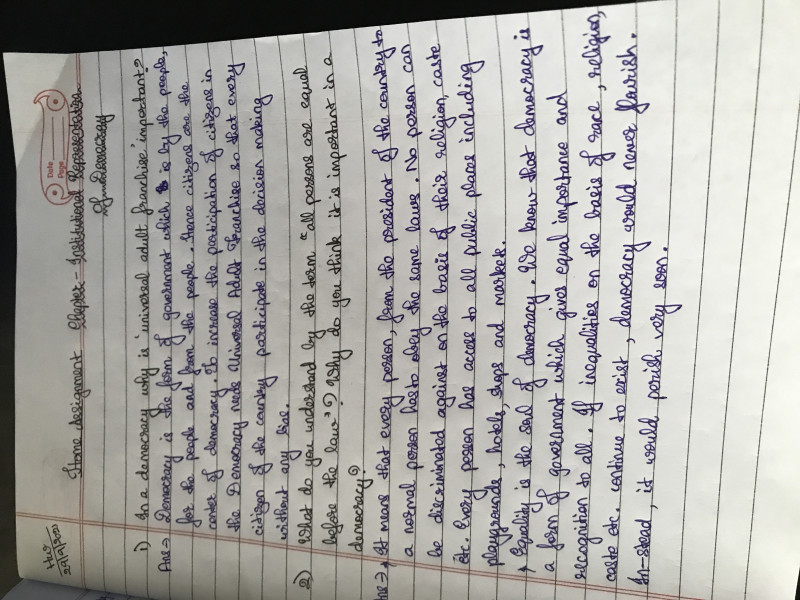 Date
Page
Home Assignment Chapter - Institutional Representation
Democracy
1) In a democracy why is 'universal adult franchise' important?
Ans → Democracy is the form of government which is by the people,
for the people and from the people. Hence citizens are the
center of democracy. To increase the participation of citizens in
the Democracy needs Universal Adult Franchise so that every
citizen of the country participate in the decision making
without any
2) What do you understand by the term "all persons are equal
before the law"? Why do you think it is important in a
democracy?
Ans → It means that every person, from the president of the country to
a normal person has to obey the same laws. No person can
be discriminated against on the basis of their religion, caste
etc. Every person has access to all public places including
playgrounds, hotels, shops and markets.
Equality is the soul of democracy. We know that democracy is
a form of government which gives equal importance and
recognition to all. If inequalities on the basis of race, religion,
caste etc. continue to exist, democracy would never flourish.
In-stead, it would perish very soon.